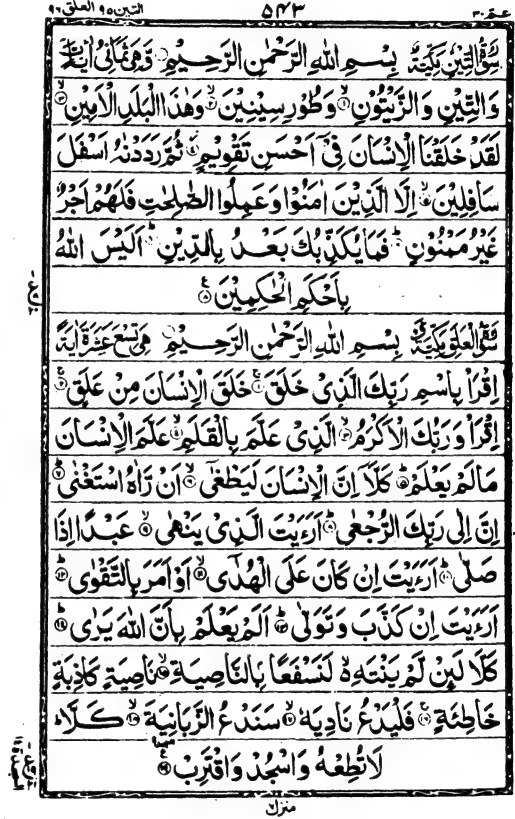 عم ٣٠ ٥٤٣ التين ٩٥ العلق ٩٦
سُوْرَةُ التِّيْنِ مَكِّيَّةٌ بِسْمِ اللهِ الرَّحْمٰنِ الرَّحِيْمِ وَهِيَ ثَمَانِيْ اٰيَاتٍ
وَالتِّيْنِ وَالزَّيْتُوْنِ ۙ۱ وَطُوْرِ سِيْنِيْنَ ۙ۲ وَهٰذَا الْبَلَدِ الْاَمِيْنِ ۙ۳
لَقَدْ خَلَقْنَا الْاِنْسَانَ فِيْٓ اَحْسَنِ تَقْوِيْمٍ ۴ ثُمَّ رَدَدْنٰهُ اَسْفَلَ
سَافِلِيْنَ ۙ۵ اِلَّا الَّذِيْنَ اٰمَنُوْا وَعَمِلُوا الصّٰلِحٰتِ فَلَهُمْ اَجْرٌ
غَيْرُ مَمْنُوْنٍ ؕ۶ فَمَا يُكَذِّبُكَ بَعْدُ بِالدِّيْنِ ؕ۷ اَلَيْسَ اللهُ
بِاَحْكَمِ الْحٰكِمِيْنَ ۸
سُوْرَةُ الْعَلَقِ مَكِّيَّةٌ بِسْمِ اللهِ الرَّحْمٰنِ الرَّحِيْمِ هِيَ تِسْعَ عَشَرَةَ اٰيَةً
اِقْرَاْ بِاسْمِ رَبِّكَ الَّذِيْ خَلَقَ ۚ۱ خَلَقَ الْاِنْسَانَ مِنْ عَلَقٍ ۚ۲
اِقْرَاْ وَرَبُّكَ الْاَكْرَمُ ۙ۳ الَّذِيْ عَلَّمَ بِالْقَلَمِ ۙ۴ عَلَّمَ الْاِنْسَانَ
مَا لَمْ يَعْلَمْ ؕ۵ كَلَّآ اِنَّ الْاِنْسَانَ لَيَطْغٰٓى ۙ۶ اَنْ رَّاٰهُ اسْتَغْنٰى ؕ۷
اِنَّ اِلٰى رَبِّكَ الرُّجْعٰى ؕ۸ اَرَءَيْتَ الَّذِيْ يَنْهٰى ۙ۹ عَبْدًا اِذَا
صَلّٰى ؕ۱۰ اَرَءَيْتَ اِنْ كَانَ عَلَى الْهُدٰٓى ۙ۱۱ اَوْ اَمَرَ بِالتَّقْوٰى ؕ۱۲
اَرَءَيْتَ اِنْ كَذَّبَ وَتَوَلّٰى ؕ۱۳ اَلَمْ يَعْلَمْ بِاَنَّ اللهَ يَرٰى ؕ۱۴
كَلَّا لَئِنْ لَّمْ يَنْتَهِ ۙ لَنَسْفَعًا بِالنَّاصِيَةِ ۙ۱۵ نَاصِيَةٍ كَاذِبَةٍ
خَاطِئَةٍ ۚ۱۶ فَلْيَدْعُ نَادِيَهٗ ۙ۱۷ سَنَدْعُ الزَّبَانِيَةَ ۙ۱۸ كَلَّا ؕ
لَا تُطِعْهُ وَاسْجُدْ وَاقْتَرِبْ ۱۹
منزل